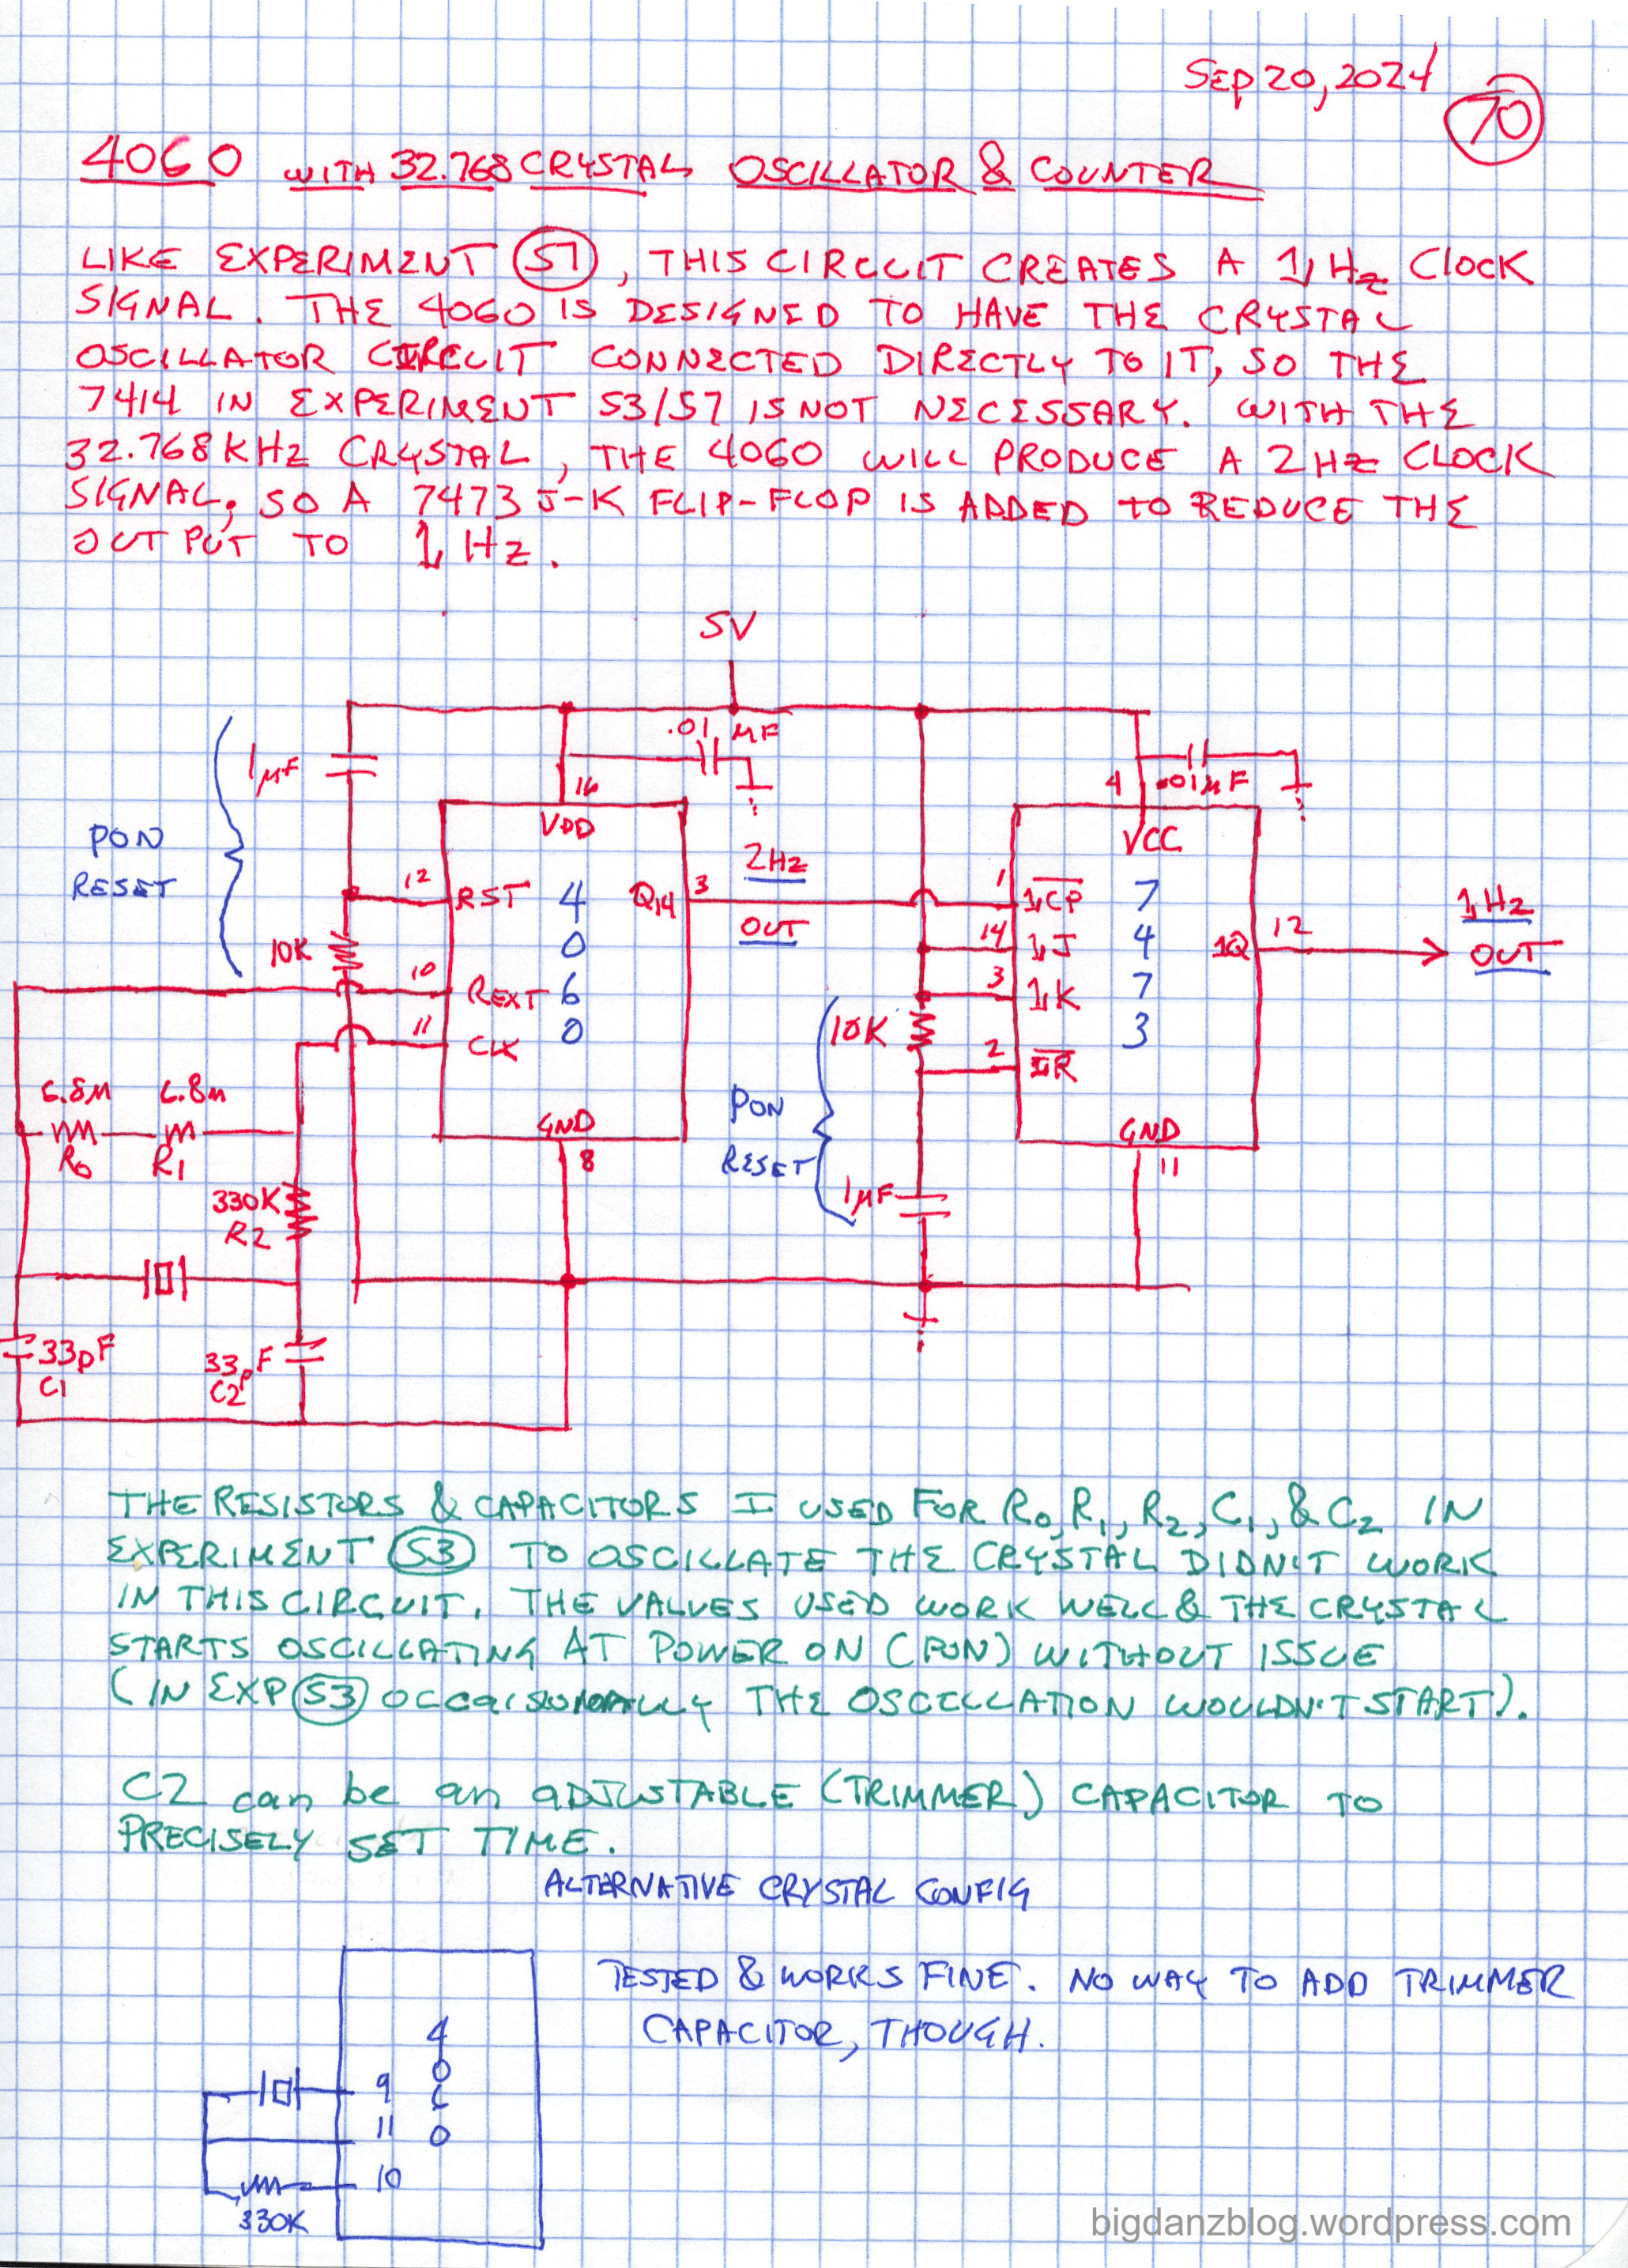 SEP 20, 2024
70
4060 WITH 32.768 CRYSTAL OSCILLATOR & COUNTER
LIKE EXPERIMENT 57, THIS CIRCUIT CREATES A 1 Hz CLOCK
SIGNAL. THE 4060 IS DESIGNED TO HAVE THE CRYSTAL
OSCILLATOR CIRCUIT CONNECTED DIRECTLY TO IT, SO THE
7414 IN EXPERIMENT 53/57 IS NOT NECESSARY. WITH THE
32.768 KHz CRYSTAL, THE 4060 WILL PRODUCE A 2 Hz CLOCK
SIGNAL, SO A 7473 J-K FLIP-FLOP IS ADDED TO REDUCE THE
OUTPUT TO 1 Hz.
5V
.01 µF
1µF
16
4 .01µF
VDD
VCC
PON
RESET
12 RST
4060
Q14 3
2Hz
OUT
1 1CP
7473
14 1J
1Q 12
1Hz
OUT
10K
10 REXT
3 1K
11 CLK
10K
2 1R
6.8M 6.8M
R0 R1
PON
RESET
GND
8
GND
11
330K
R2
1µF
33pF
C1
33pF
C2
THE RESISTORS & CAPACITORS I USED FOR R0, R1, R2, C1, & C2 IN
EXPERIMENT 53 TO OSCILLATE THE CRYSTAL DIDN'T WORK
IN THIS CIRCUIT. THE VALUES USED WORK WELL & THE CRYSTAL
STARTS OSCILLATING AT POWER ON (PON) WITHOUT ISSUE
(IN EXP 53 OCCAISIONALLY THE OSCILLATION WOULDN'T START).
C2 can be an ADJUSTABLE (TRIMMER) CAPACITOR TO
PRECISELY SET TIME.
ALTERNATIVE CRYSTAL CONFIG
TESTED & WORKS FINE. NO WAY TO ADD TRIMMER
CAPACITOR, THOUGH.
4060
9
11
10
330K
bigdanzblog.wordpress.com